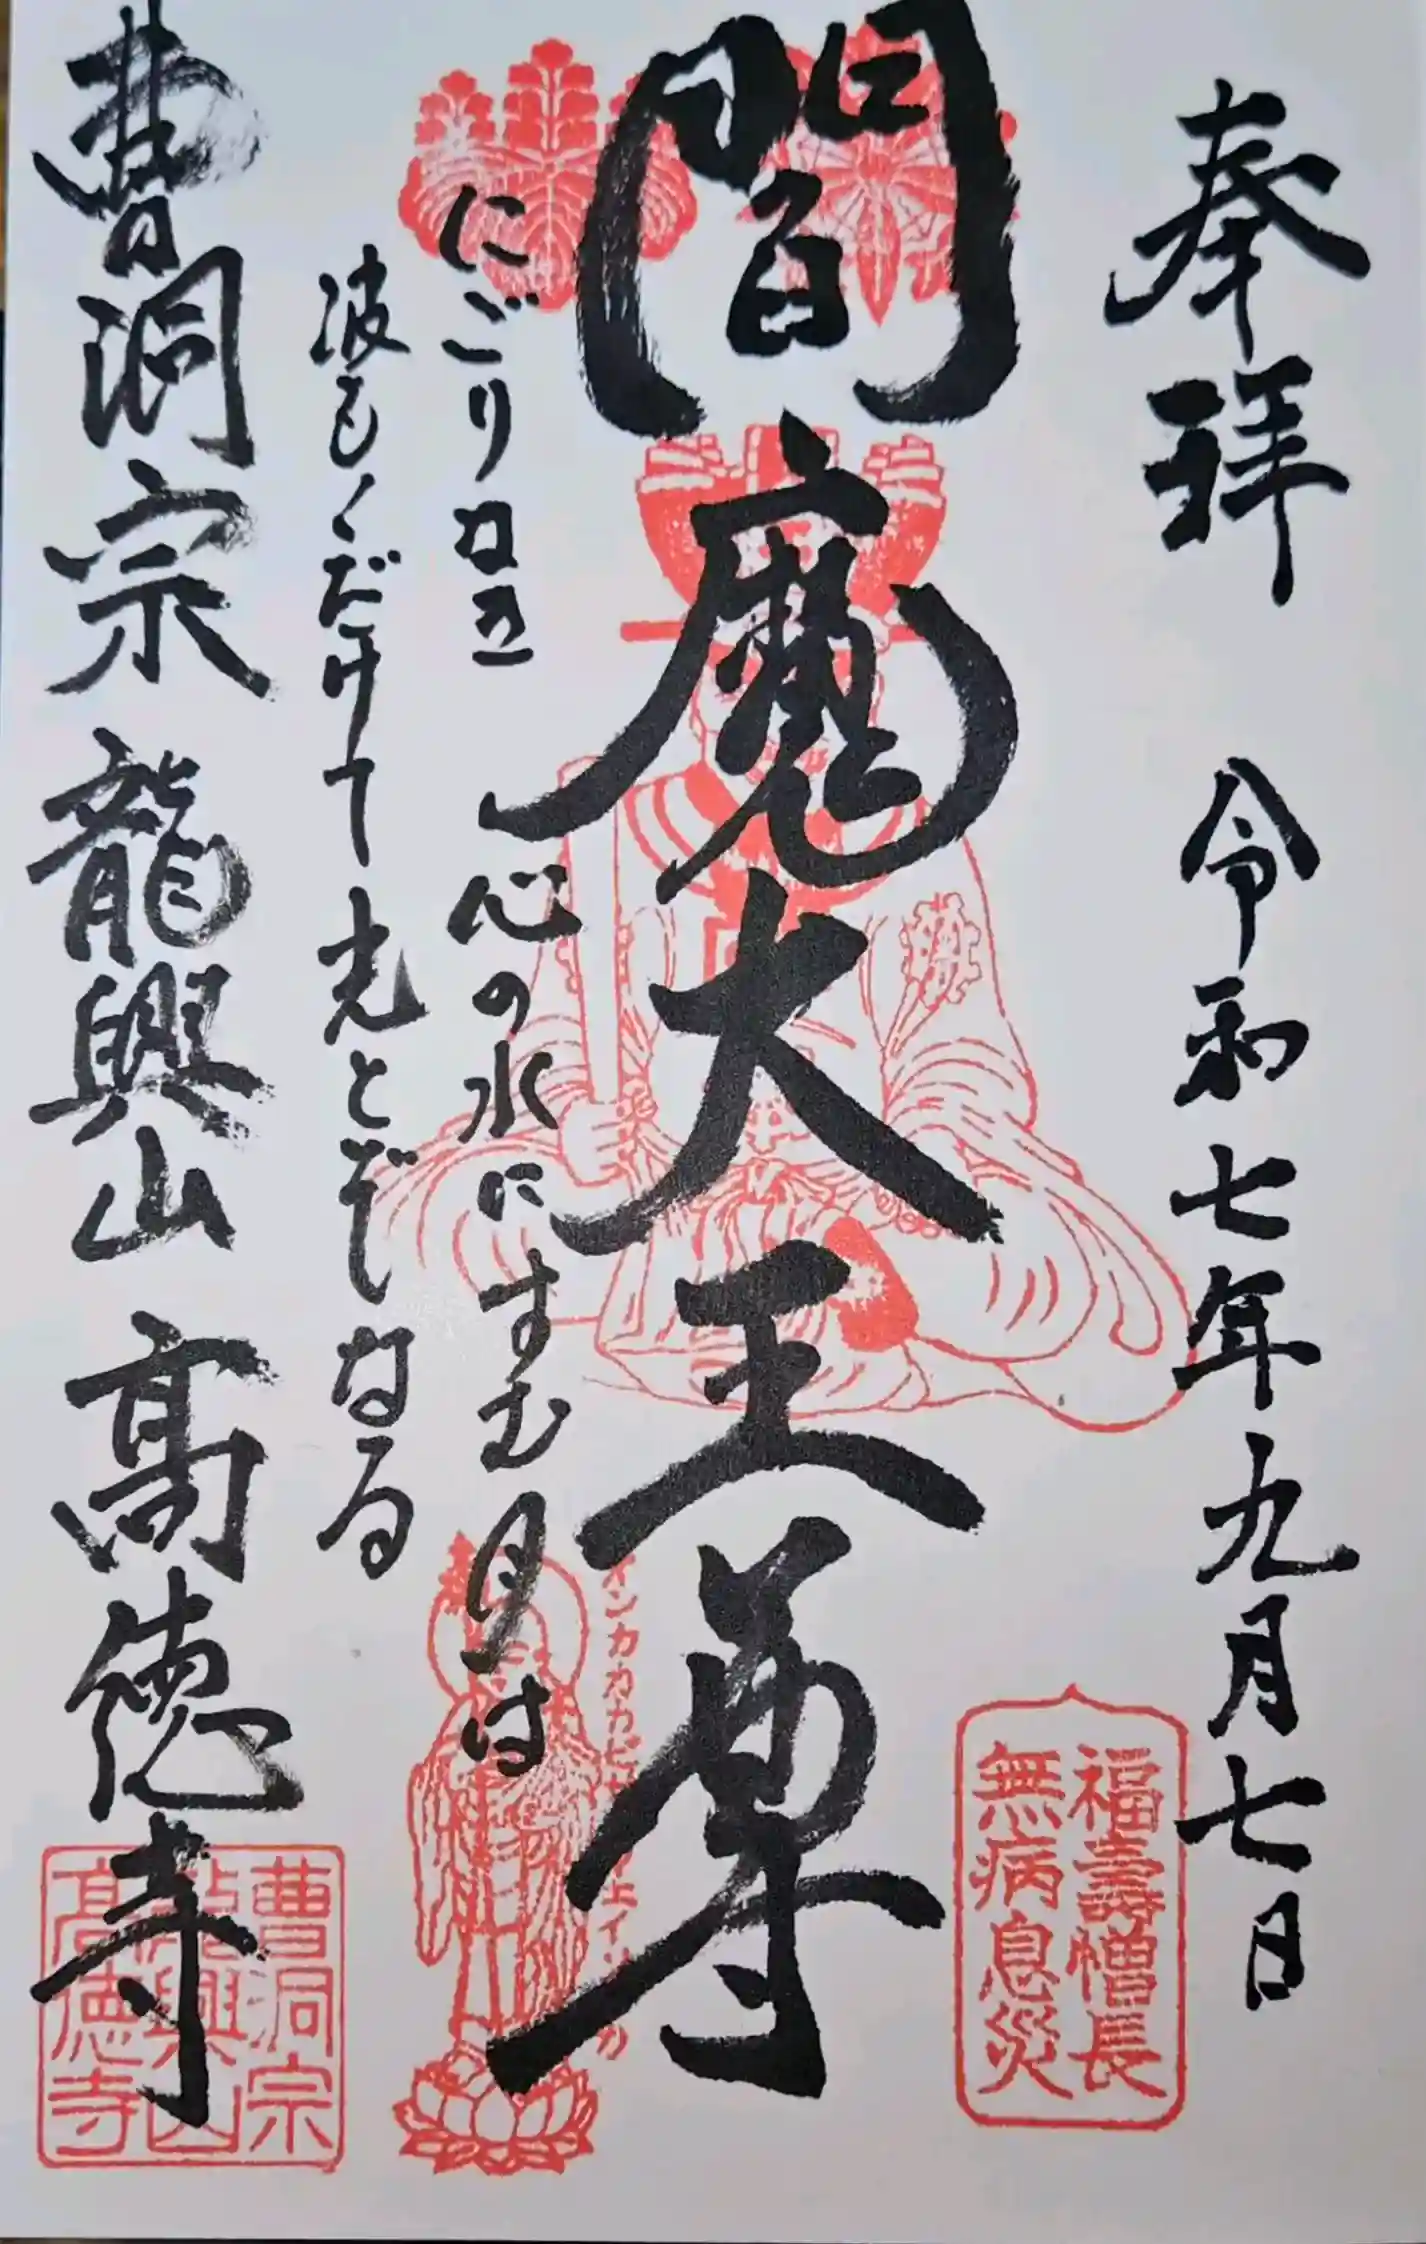 奉拝 令和七年九月七日
福壽増長
無病息災
閻魔大王尊
にごりなき 心の水にすむ月は
波もくだけて 光とぞなる
曹洞宗 龍興山 高徳寺
曹洞宗
龍興山
高徳寺